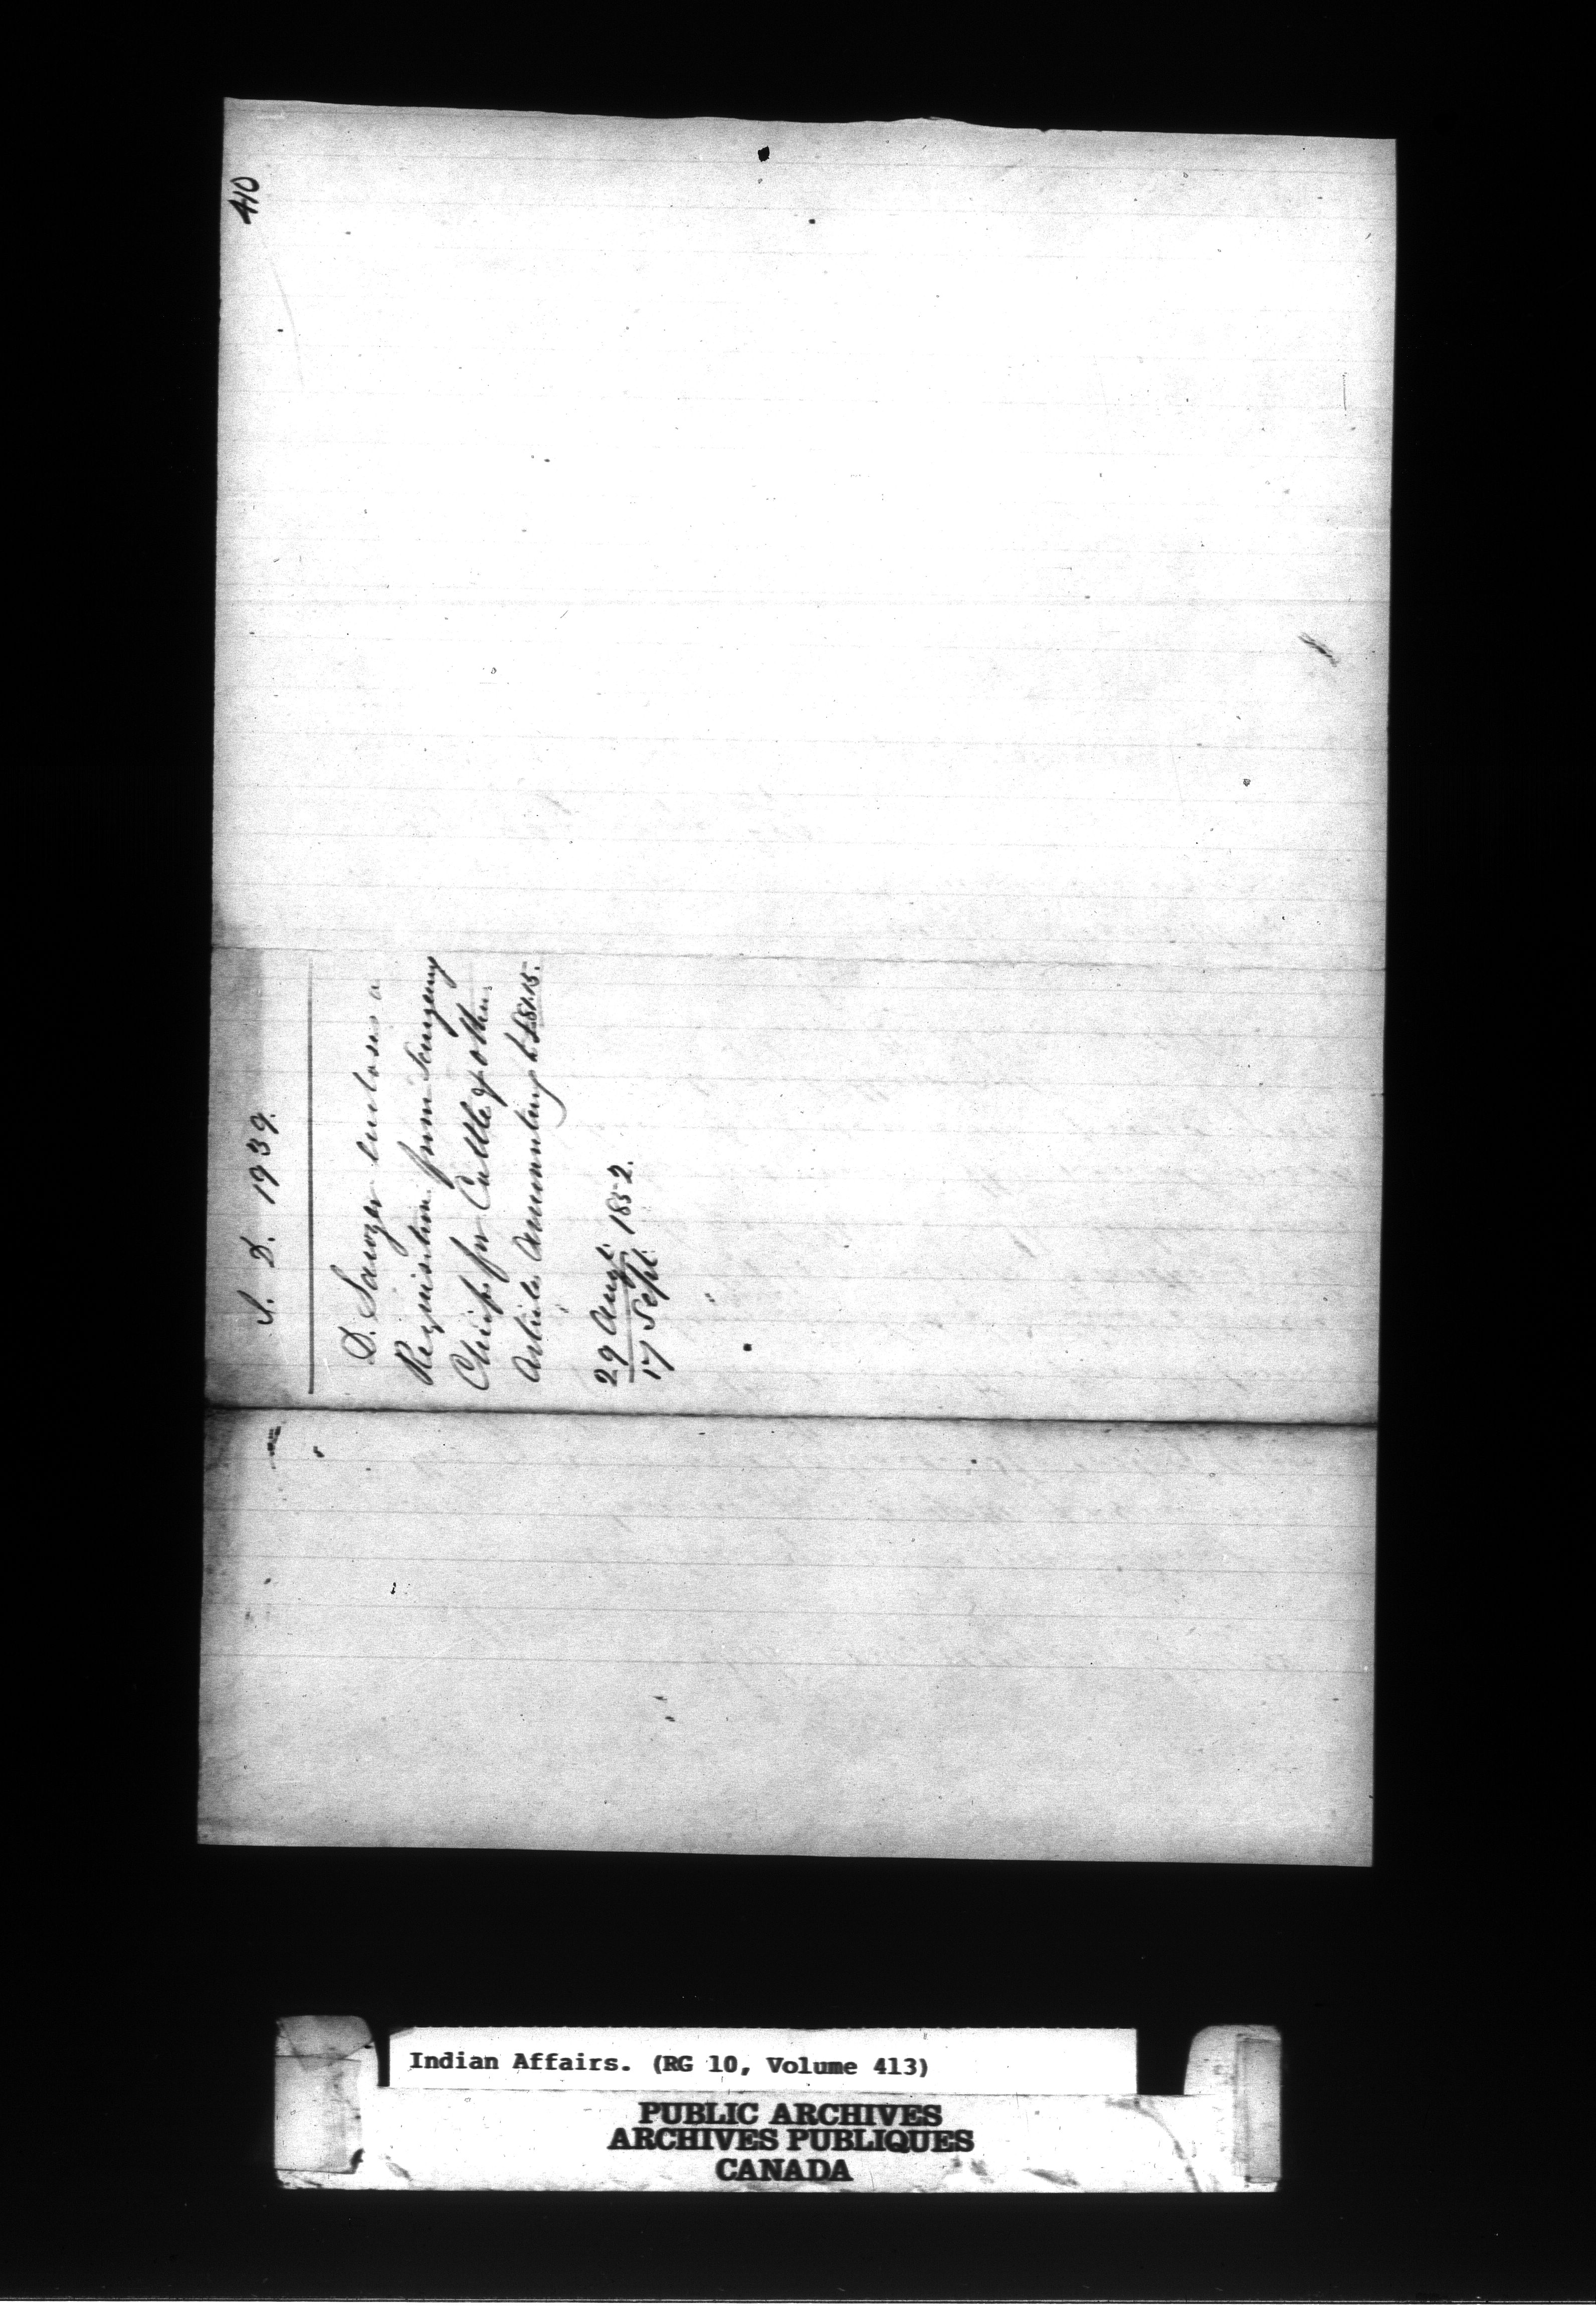 410
S. D. 1939.
D. Sawyer encloses a
Requisition from Saugeeng
Chiefs for Cattle & other
Articles Amounting to £81.15.
29 Augt. 1852.
17 Sept.
Indian Affairs. (RG 10, Volume 413)
PUBLIC ARCHIVES
ARCHIVES PUBLIQUES
CANADA